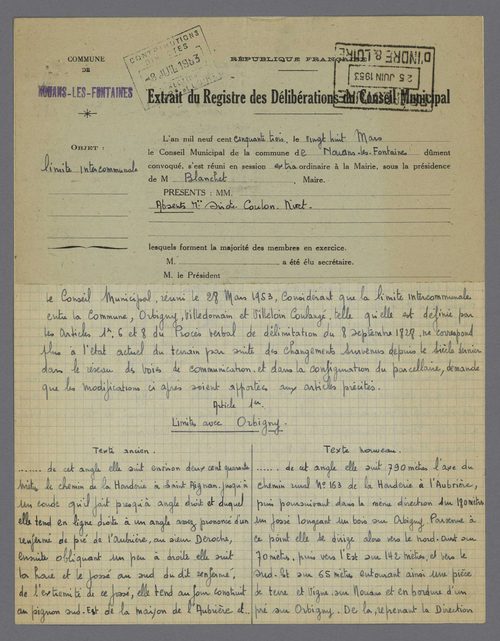 COMMUNE
DE
NOUANS-LES-FONTAINES
CONTRIBUTIONS
DIRECTES
8 JUIL 1953
RÉPUBLIQUE FRANÇAISE
D'INDRE & LOIRE
25 JUIN 1953
Extrait du Registre des Délibérations du Conseil Municipal
OBJET :
limite intercommunale
L'an mil neuf cent cinquante trois, le vingt huit Mars
le Conseil Municipal de la commune de Nouans-les-Fontaines dûment
convoqué, s'est réuni en session extraordinaire à la Mairie, sous la présidence
de M Blanchet, Maire.
PRESENTS : MM.
Absents Coulon. Nivet.
lesquels forment la majorité des membres en exercice.
M. a été élu secrétaire.
M. le Président
Le Conseil Municipal, réuni le 28 Mars 1953, Considérant que la limite intercommunale
entre la Commune, Orbigny, Villedomain et Villeloin Coulangé, telle qu'elle est définie par
les Articles 1er, 6 et 8 du Procès verbal de délimitation du 8 septembre 1828, ne correspond
plus à l'état actuel du terrain par suite des changements survenus depuis le siècle dernier
dans le réseau des voies de communication et dans la configuration du parcellaire, demande
que les modifications ci après soient apportées aux articles précités.
Article 1er
Limites avec Orbigny.
Texte ancien.
....... de cet angle elle suit environ deux cent quarante
mètres le chemin de la Harderie à Saint Aignan. jusqu'à
un coude qu'il fait presqu'à angle droit et duquel
elle tend en ligne droite à un angle assez prononcé d'un
renfermé de pié de l'Aubrière, au sieur Deroche,
ensuite obliquant un peu à droite elle suit
la haie et le fossé au sud du dit renfermé,
de l'extrémité de ce fossé, elle tend au four construit
au pignon sud-Est de la maison de l'Aubrière et.
Texte nouveau.
....... de cet angle elle suit 790 mètres l'axe du
chemin rural N° 163 de la Harderie à l'Aubrière,
puis poursuivant dans la même direction sur 190 mètres
un fossé longeant un bois sur Orbigny. Parvenue à
ce point elle se dirige alors vers le nord-ouest sur
70 mètres, puis vers l'Est sur 142 mètres, et vers le
Sud-Est sur 65 mètres entourant ainsi une pièce
de terre et vigne sur Nouans et en bordure d'un
pré sur Orbigny. De là, reprenant la Direction